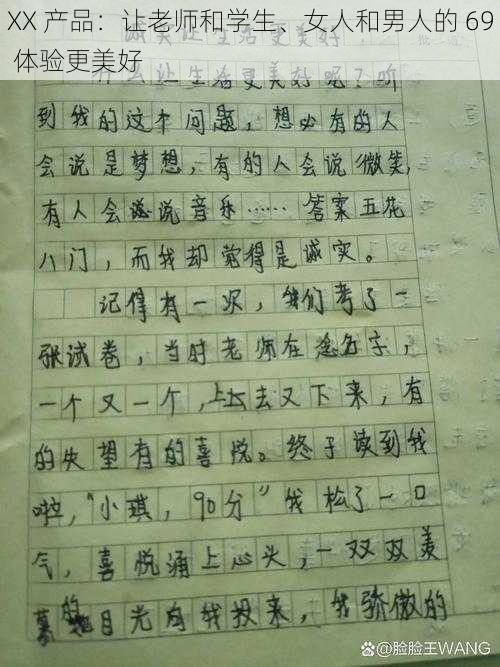 XX 产品：让老师和学生、女人和男人的 69
体验更美好
诚实让生活更美好
什么让生活更美好呢？听
到我的这个问题，想必有的人
会说是梦想，有的人会说微笑，
有人会说音乐……答案五花
八门，而我却觉得是诚实。
记得有一次，我们考了一
张试卷，当时老师在念名字，
一个又一个，上去又下来，有
的失望有的喜悦。终于读到我
啦，“小琪，90分”我松了一口
气，喜悦涌上心头，一双双羡
慕的目光向我投来，我骄傲的
@脸脸王WANG